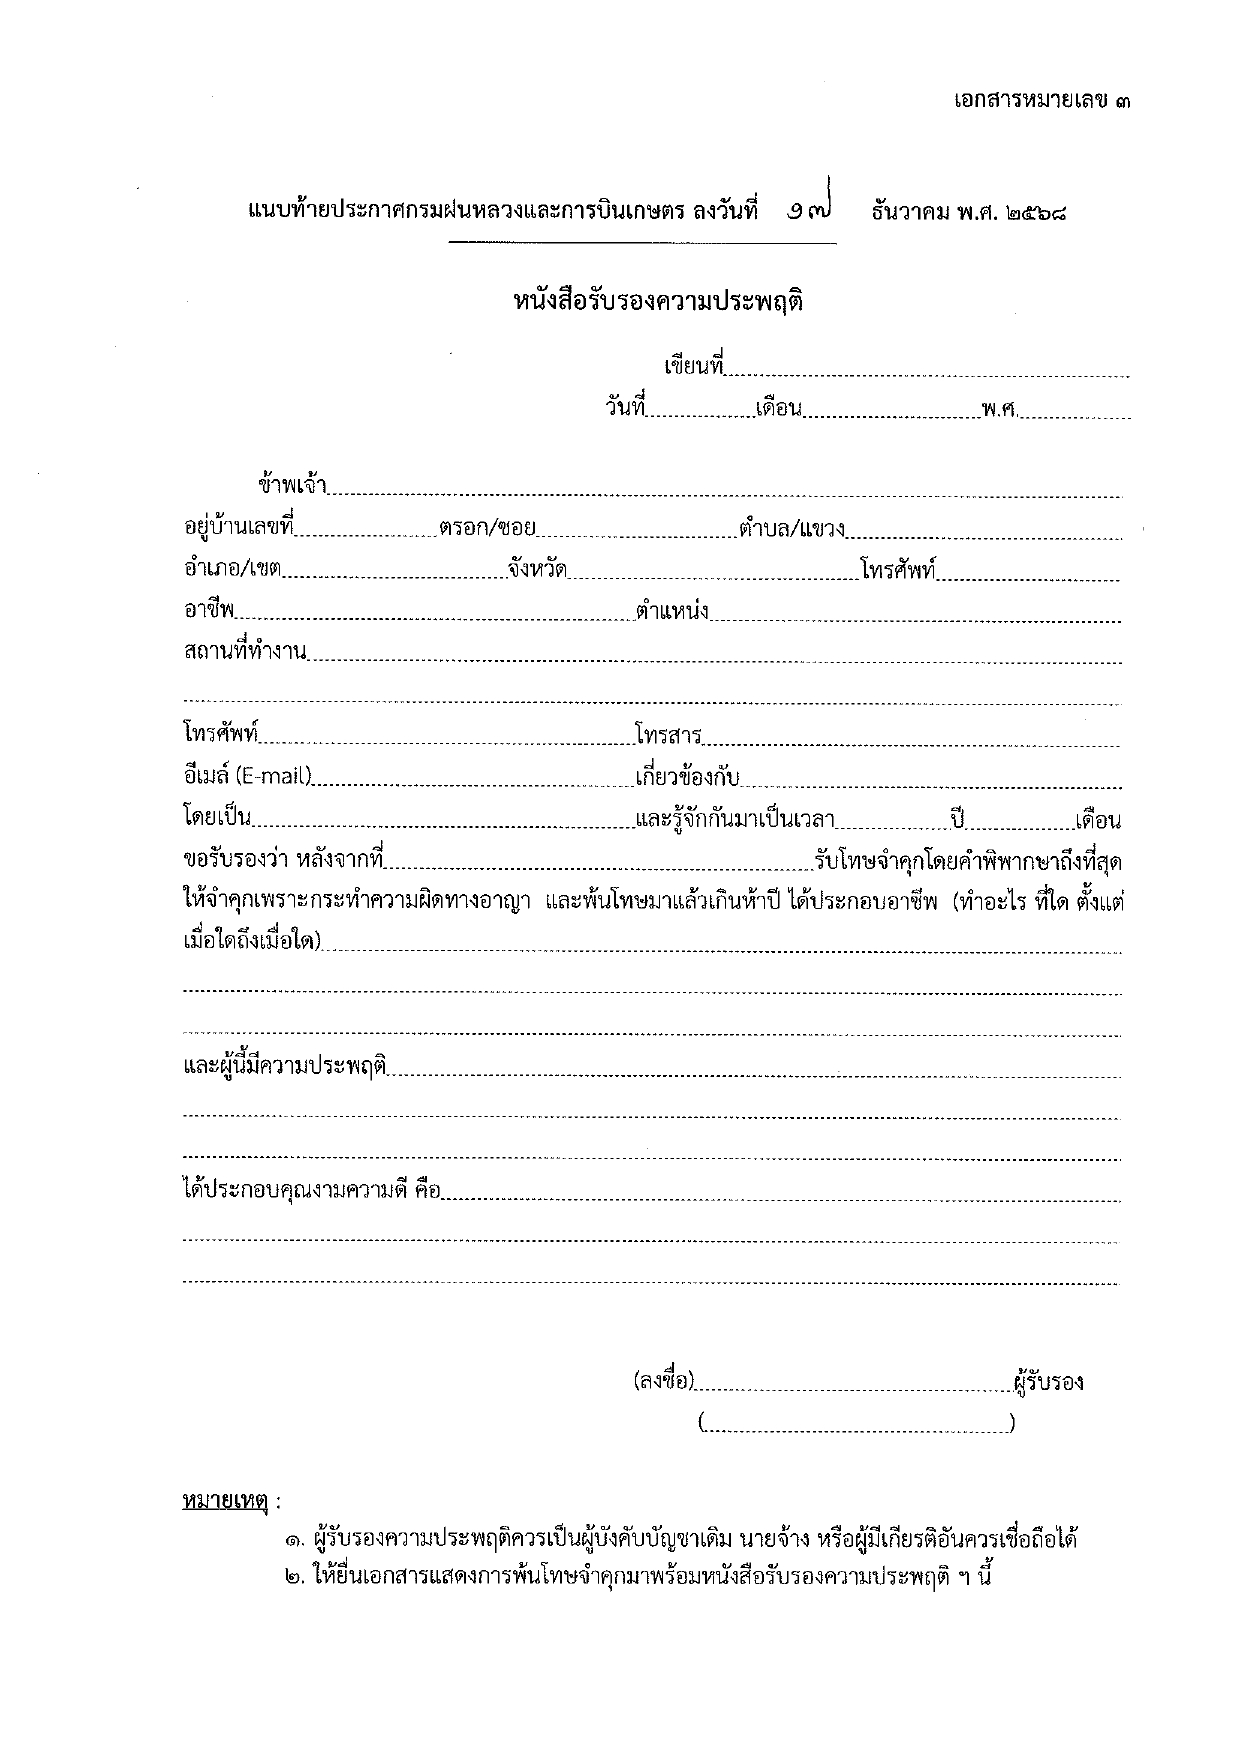 เอกสารหมายเลข ๓
แนบท้ายประกาศกรมฝนหลวงและการบินเกษตร ลงวันที่ ๑๗ ธันวาคม พ.ศ. ๒๕๖๘
หนังสือรับรองความประพฤติ
เขียนที่
วันที่ เดือน พ.ศ.
ข้าพเจ้า
อยู่บ้านเลขที่ ตรอก/ซอย ตำบล/แขวง
อำเภอ/เขต จังหวัด โทรศัพท์
อาชีพ ตำแหน่ง
สถานที่ทำงาน
โทรศัพท์ โทรสาร
อีเมล์ (E-mail) เกี่ยวข้องกับ
โดยเป็น และรู้จักกันมาเป็นเวลา ปี เดือน
ขอรับรองว่า หลังจากที่ รับโทษจำคุกโดยคำพิพากษาถึงที่สุด
ให้จำคุกเพราะกระทำความผิดทางอาญา และพ้นโทษมาแล้วเกินห้าปี ได้ประกอบอาชีพ (ทำอะไร ที่ใด ตั้งแต่
เมื่อใดถึงเมื่อใด)
และผู้นี้มีความประพฤติ
ได้ประกอบคุณงามความดี คือ
(ลงชื่อ) ผู้รับรอง
( )
หมายเหตุ :
๑. ผู้รับรองความประพฤติควรเป็นผู้บังคับบัญชาเดิม นายจ้าง หรือผู้มีเกียรติอันควรเชื่อถือได้
๒. ให้ยื่นเอกสารแสดงการพ้นโทษจำคุกมาพร้อมหนังสือรับรองความประพฤติ ฯ นี้